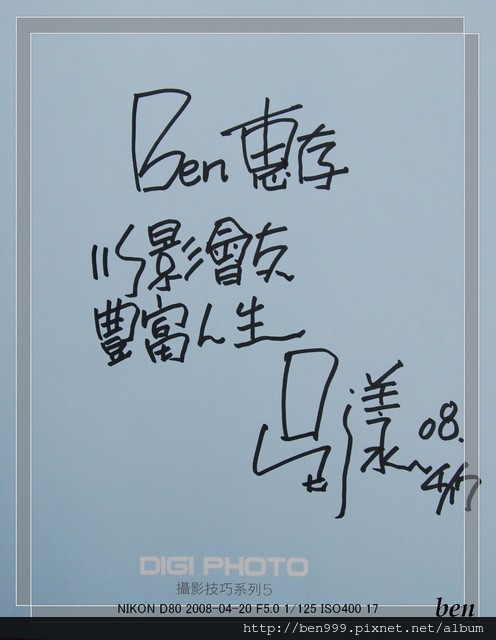 Ben 惠存
以影會友
豐富人生
08.
DIGI PHOTO
攝影技巧系列5
NIKON D80 2008-04-20 F5.0 1/125 ISO400 17
ben
http://ben999.pixnet.net/album